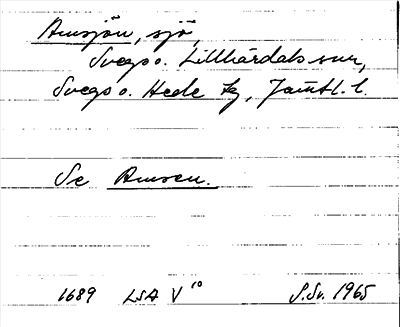 Amsjön, sjö,
Svegs o. Lillhärdals snr,
Svegs o. Hede tg, Jämtl. l.
Se Amsen.
1689 LSA V¹⁰ S.Sv. 1965